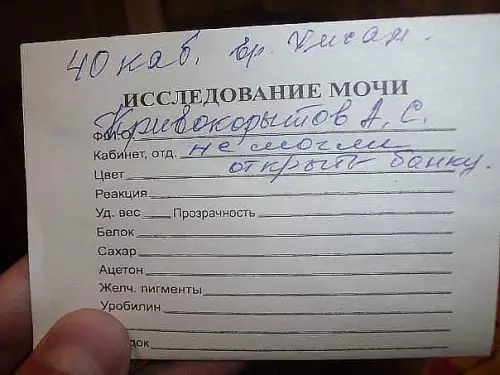 40 каб. вр.
ИССЛЕДОВАНИЕ МОЧИ
Кривокорытов А. С.
Кабинет, отд. не могли
Цвет открыть банку.
Реакция
Уд. вес Прозрачность
Белок
Сахар
Ацетон
Желч. пигменты
Уробилин